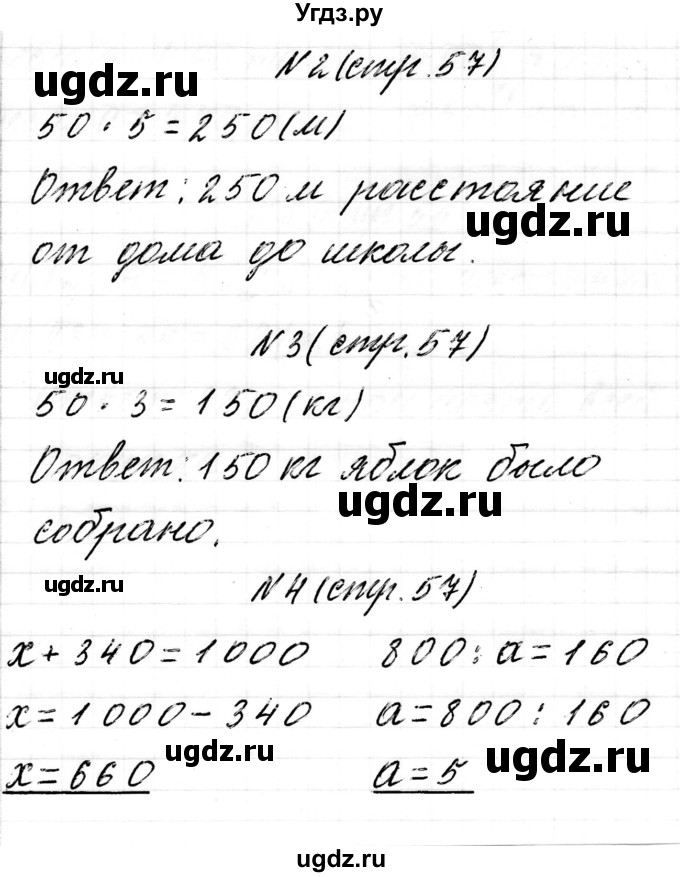 Угдз.ру
N2(стр.57)
ugdz.ru
50 · 5 = 250(м)
Ответ: 250 м расстояние
ugdz.ru
от дома до школы.
N3(стр.57)
ugdz.ru
50 · 3 = 150(кг)
Ответ: 150 кг яблок было
ugdz.ru
собрано.
ugdz.ru
N4(стр.57)
x + 340 = 1000 800 : a = 160
x = 1000 - 340 a = 800 : 160
ugdz.ru ugdz.ru
x = 660 a = 5
ugdz.ru